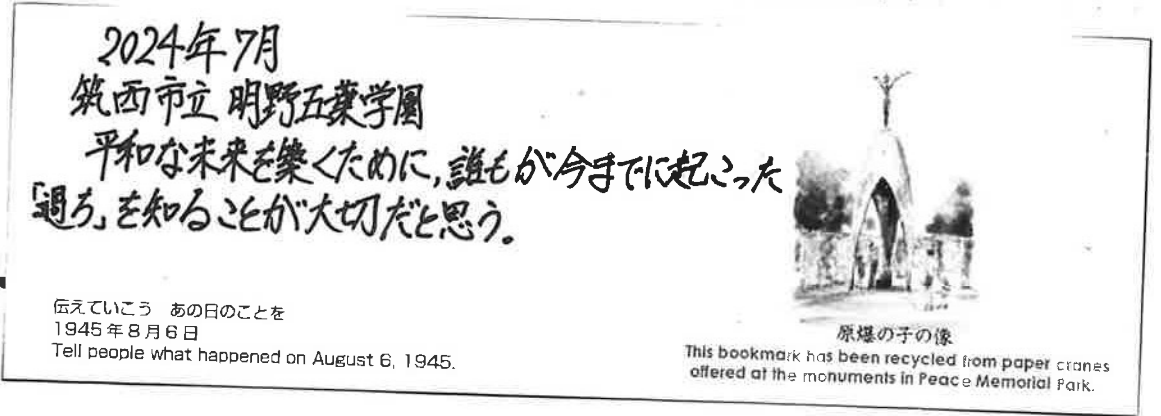 2024年7月
筑西市立 明野五葉学園
平和な未来を築くために,誰もが今までに起こった
「過ち」を知ることが大切だと思う。
伝えていこう あの日のことを
1945年8月6日
Tell people what happened on August 6, 1945.
原爆の子の像
This bookmark has been recycled from paper cranes
offered at the monuments in Peace Memorial Park.